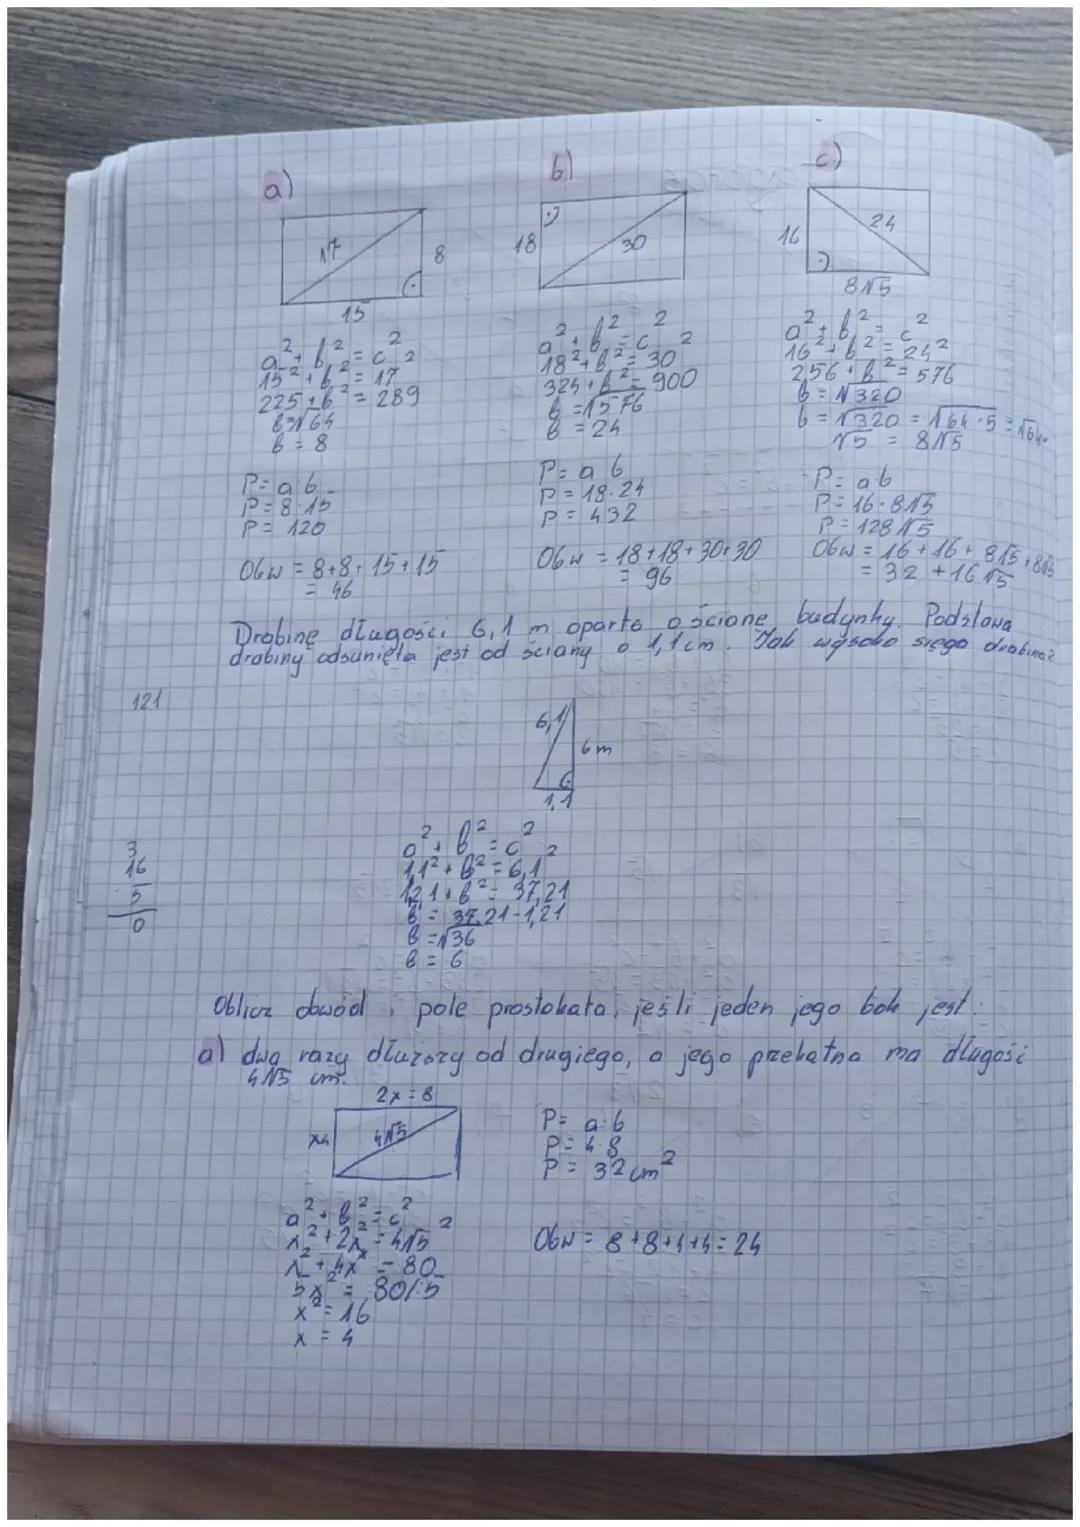 a)
17
8
15
a² + b² = c²
15² + b² = 17²
225 + b² = 289
b = √64
b = 8
P = a·b
P = 8·15
P = 120
Obw = 8+8+15+15
= 46
b)
18
30
a² + b² = c²
18² + b² = 30²
324 + b² = 900
b = √576
b = 24
P = a·b
P = 18·24
P = 432
Obw = 18+18+30+30
= 96
c)
16
24
8√5
a² + b² = c²
16² + b² = 24²
256 + b² = 576
b = √320
b = √320 = √64·5 = √64·
√5 = 8√5
P = a·b
P = 16·8√5
P = 128√5
Obw = 16+16+ 8√5+8√5
= 32 + 16√5
Drabinę długości 6,1 m oparto o ścianę budynku. Podstawa
drabiny odsunięta jest od ściany o 1,1 cm. Jak wysoko sięga drabina?
121
6,1
6 m
1,1
3
16
5
0
a² + b² = c²
1,1² + b² = 6,1²
12,1 + b² = 37,21
b = 37,21-1,21
b = √36
b = 6
Oblicz obwód i pole prostokąta, jeśli jeden jego bok jest:
a) dwa razy dłuższy od drugiego, a jego przekątna ma długość
4√5 cm.
2x = 8
x4
4√5
P = a·b
P = 4·8
P = 32 cm²
a² + b² = c²
x² + 2x² = 4√5²
x² + 4x² = 80
5x² = 80/:5
x² = 16
x = 4
Obw = 8+8+4+4 = 24